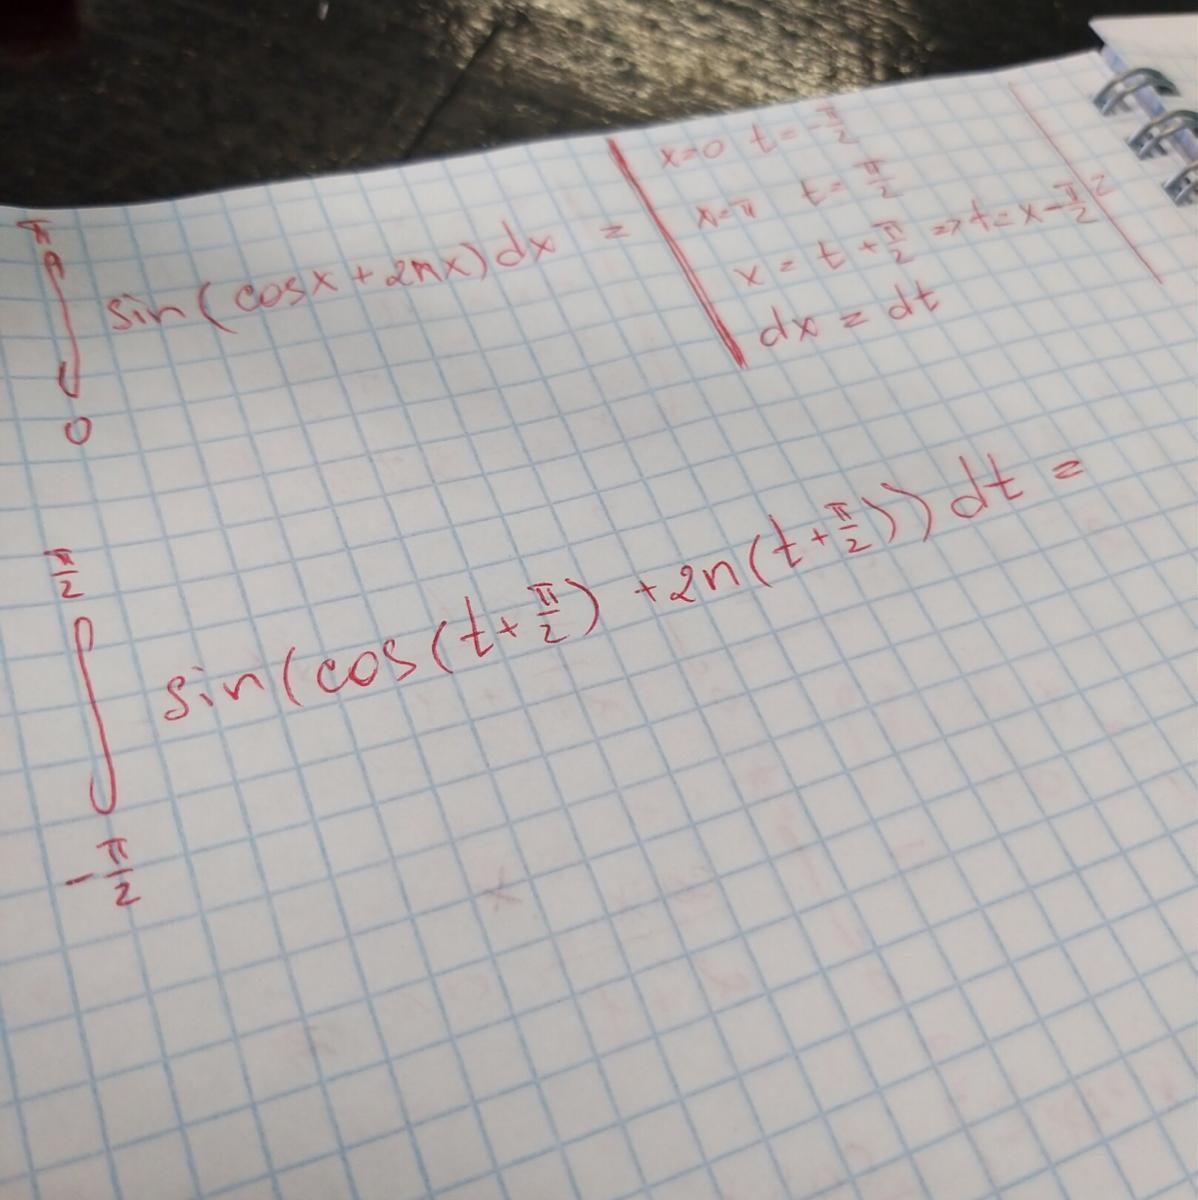 ∫₀^π sin(cosx + 2nx)dx =
x=0 t=-π/2
x=π t=π/2
x = t + π/2 => t=x-π/2 =
dx = dt
∫_{-π/2}^{π/2} sin(cos(t+π/2) + 2n(t+π/2))dt =